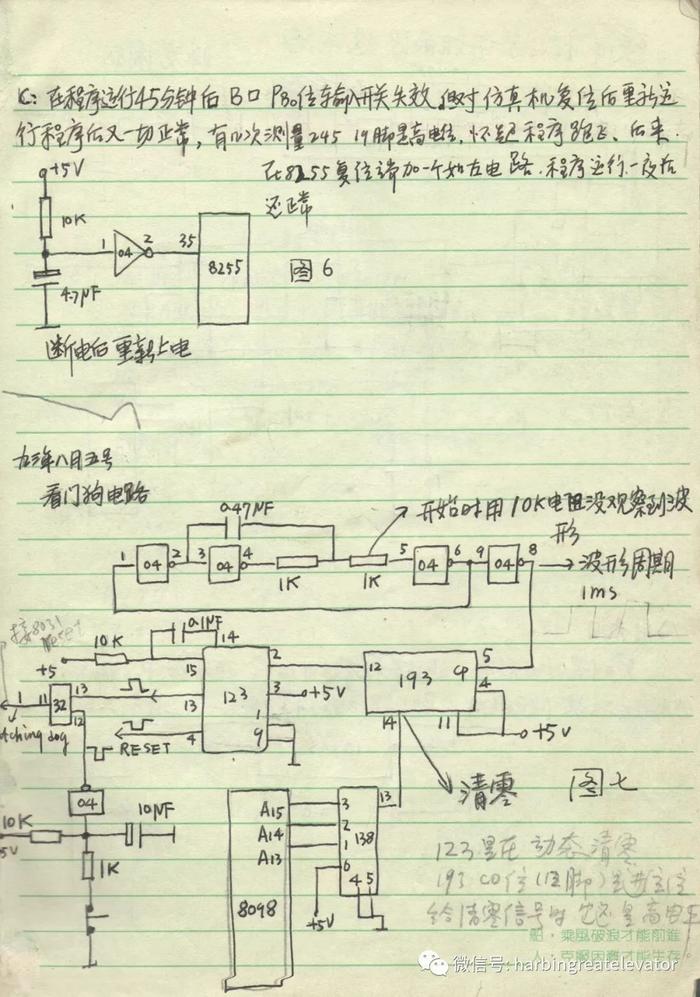 C: 在程序运行45分钟后 B口 PB0位车输入开关失效。但对仿真机复位后重新运
行程序后又一切正常, 有几次测量245 19脚是高电位, 怀疑程序跑飞、后来
在8255复位端加一个如左电路. 程序运行一夜后
还正常
+5V
10K
4.7μF
1
04
2
35
8255
图6
断电后重新上电
九三年八月五号
看门狗电路
0.47μF
开始时用10K电阻没观察到波
形
1 04 2 3 04 4 1K 1K 5 04 6 9 04 8
波形周期
1ms
接8031
Reset
10K
0.1μF
14
+5
15
123
2
12
193
CP
5
4
1 11 32 13
12
13
3
+5V
4
RESET
1
9
14
11
+5V
tching dog
清零
图七
04
10K
5V
10μF
1K
8098
A15
A14
A13
3
2
1
6
138
4 5
13
+5V
123是在动态清零
193 CO位(12脚)
给清零信号时它还是高电平
船,乘風破浪才能前進
人,克服困難才能生存
微信号: harbingreatelevator